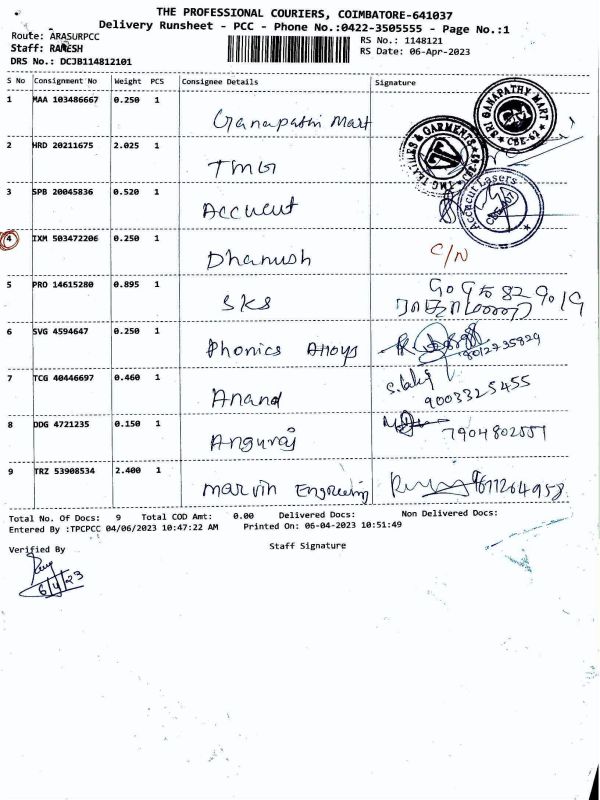 THE PROFESSIONAL COURIERS, COIMBATORE-641037
Delivery Runsheet - PCC - Phone No.:0422-3505555 - Page No.:1
Route: ARASURPCC
RS No.: 1148121
Staff: RAMESH
RS Date: 06-Apr-2023
DRS No.: DCJB114812101
S No Consignment No Weight PCS Consignee Details Signature
1 MAA 103486667 0.250 1 Ganapathi Mart SRI GANAPATHY MART CBE-62
2 HRD 20211675 2.025 1 TMG TMG TEXTILES & GARMENTS
3 SPB 20045836 0.520 1 Accucut Accucut Lasers
4 IXM 503472206 0.250 1 Dhanush C/N
5 PRO 14615280 0.895 1 SKS
6 SVG 4594647 0.250 1 Phonics Alloys 8012735829
7 TCG 40446697 0.460 1 Anand 9003325455
8 DDG 4721235 0.150 1 Anguraj 7904802551
9 TRZ 53908534 2.400 1 Marvin Engineering 9611264958
Total No. Of Docs: 9 Total COD Amt: 0.00 Delivered Docs: Non Delivered Docs:
Entered By :TPCPCC 04/06/2023 10:47:22 AM Printed On: 06-04-2023 10:51:49
Verified By Staff Signature
6/4/23